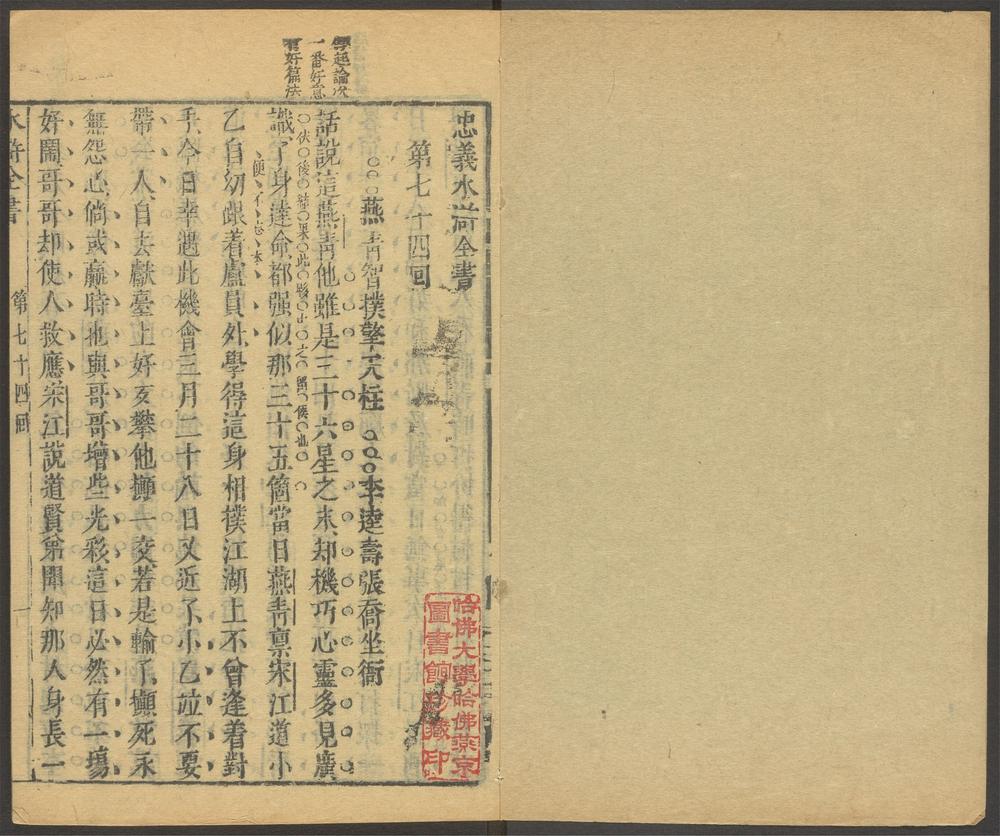 忠義水滸全書
第七十四回
燕青智撲擎天柱 李逵壽張喬坐衙
話說這燕青他雖是三十六星之末却機巧心靈多見廣
識了身達命都强似那三十五箇當日燕青禀宋江道小
乙自幼跟着盧員外學得這身相撲江湖上不曾逢着對
手今日幸遇此機會三月二十八日又近了小乙並不要
帶一人自去獻臺上好歹攀他攧一交若是輸了攧死永
無怨心倘或贏時也與哥哥增些光彩這日必然有一塲
好鬧哥哥却使人救應宋江說道賢弟聞知那人身長一
學起論次
一番好意
有好篇法
伏後結果此段止之留候也
便不忘本
水滸全書
第七十四回
一
哈佛大學哈佛燕京
圖書館珍藏印